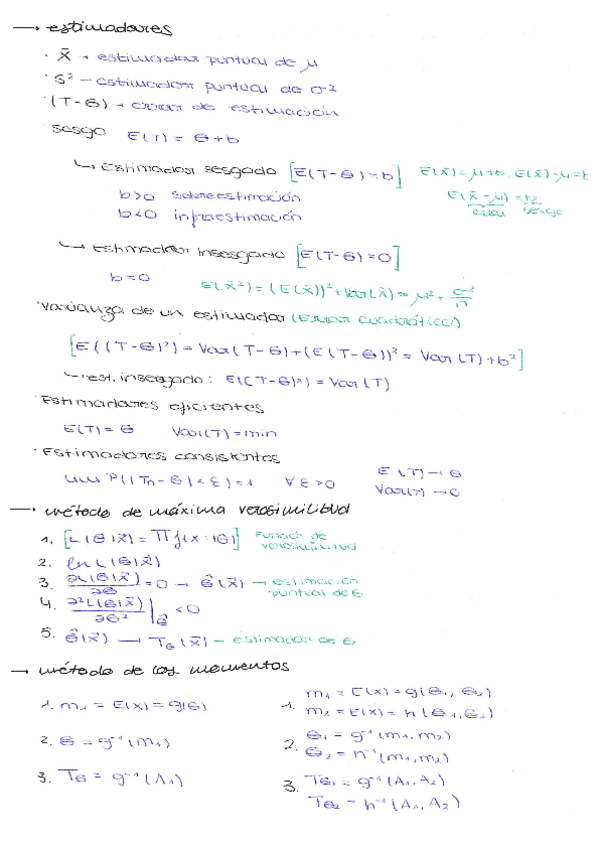 → estimadores
· X̄ → estimador puntual de μ
· S² → estimador puntual de σ²
· (T-θ) → error de estimación
· Sesgo E(T) = θ+b
↳ Estimador sesgado [E(T-θ)=b] E(X̄)=μ+b, E(X̄)-μ=b
b>0 sobreestimación E(X̄-μ)=b
b<0 infraestimación error sesgo
↳ Estimador insesgado [E(T-θ)=0]
b=0 E(X̄²)=(E(X̄))²+Var(X̄)=μ²+σ²/n
· Varianza de un estimador (Error cuadrático)
[E((T-θ)²)=Var(T-θ)+(E(T-θ))²=Var(T)+b²]
↳ est. insesgado: E((T-θ)²)=Var(T)
· Estimadores eficientes
E(T)=θ Var(T)=min
· Estimadores consistentes E(T)→θ
lim P(|Tn-θ|<ε)=1 ∀ε>0 Var(T)→0
→ método de máxima verosimilitud
1. [L(θ|x⃗)=∏f(xi|θ)] Función de verosimilitud
2. ln L(θ|x⃗)
3. ∂L(θ|x⃗)/∂θ=0 → θ̂(x⃗) → estimación puntual de θ
4. ∂²L(θ|x⃗)/∂θ²|θ̂ <0
5. θ̂(x⃗) → Tθ(x⃗) → estimador de θ
→ método de los momentos
1. m₁=E(X)=g(θ) 1. m₁=E(X)=g(θ₁,θ₂)
m₂=E(X)=h(θ₁,θ₂)
2. θ=g⁻¹(m₁) 2. θ₁=g⁻¹(m₁,m₂)
θ₂=h⁻¹(m₁,m₂)
3. Tθ=g⁻¹(A₁) 3. Tθ₁=g⁻¹(A₁,A₂)
Tθ₂=h⁻¹(A₁,A₂)